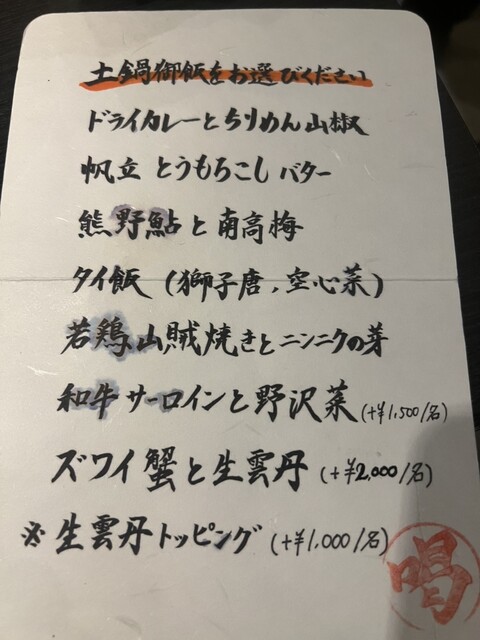 土鍋御飯をお選びください
ドライカレーとちりめん山椒
帆立 とうもろこし バター
熊野鮎と南高梅
タイ飯 (獅子唐、空心菜)
若鶏山賊焼きとニンニクの芽
和牛サーロインと野沢菜(+¥1,500/名)
ズワイ蟹と生雲丹 (+¥2,000/名)
※生雲丹トッピング (+¥1,000/名)
喝